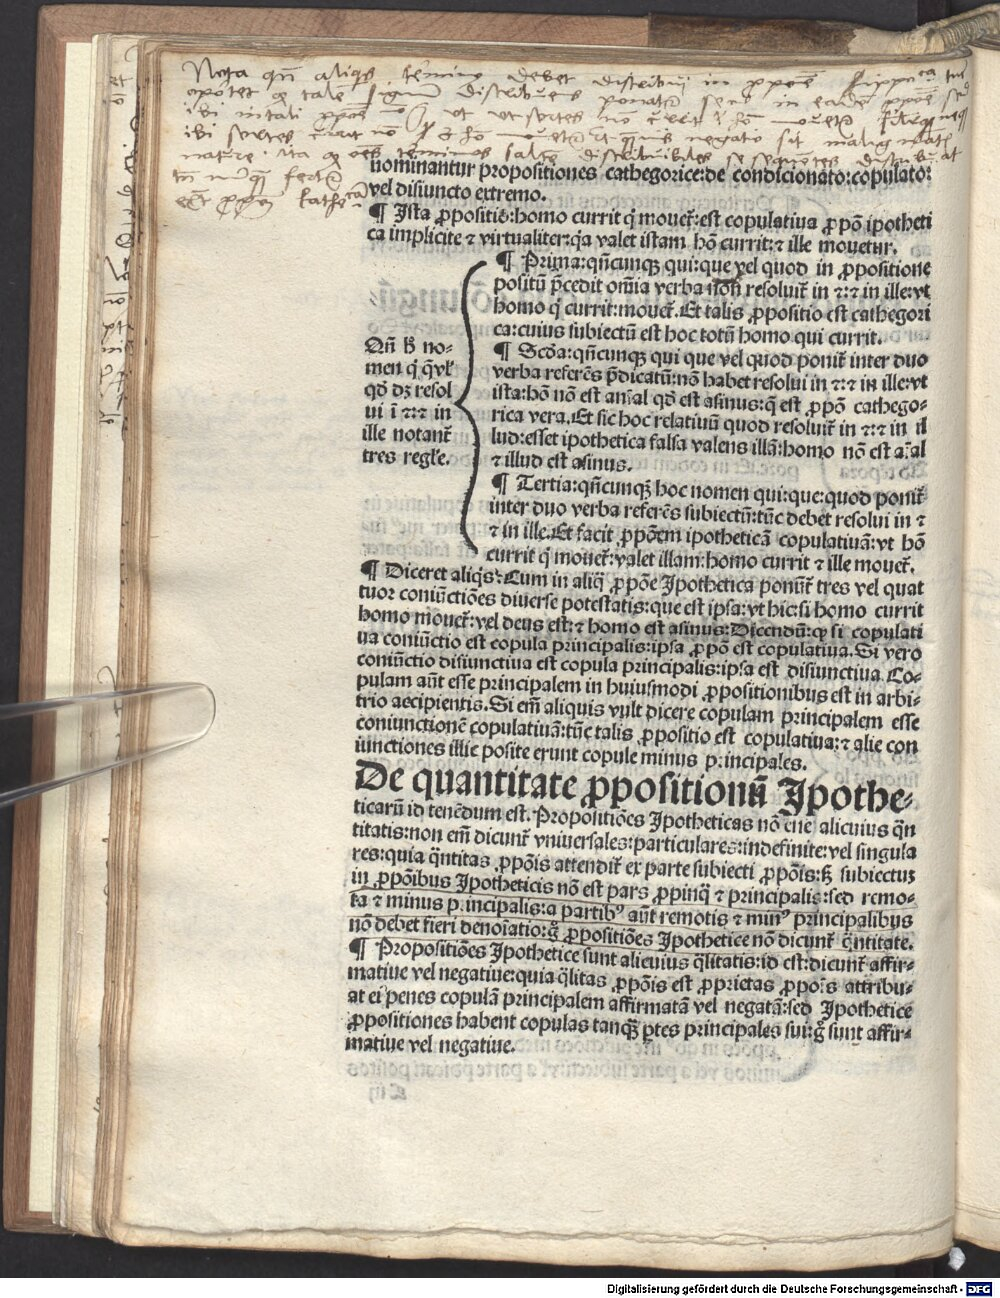 Nota qn̄ aliqs̄ termin9 debet distribui in ꝓpoē
opōtet ꝙ tale signū distribuens ponatr̄ in eadē ꝓpoē
nominantur propositiones cathegorice:de condicionato:copulato:
vel disiuncto extremo.
¶ Ista ꝓpositiē:homo currit q̄ mouet̄:est copulatiua ꝓpō ipotheti
ca implicite ⁊ virtualiter:q̄a valet istam hō currit:⁊ ille mouetur.
¶ Prima:qn̄cunqꝫ qui:que vel quod in ꝓpositione
positū p̄cedit om̄ia verba non resoluit̄ in ⁊:⁊ in ille:vt
homo q̄ currit:mouet̄. Et talis ꝓpositio est cathegori
ca:cuius subiectū est hoc totū homo qui currit.
Qn̄ h̓ no-
men q̄ q̄vl̓
qd̓ dꝫ resol
ui ī ⁊:⁊ in
ille notant̄
tres regl̓e.
¶ Scd̓a:qn̄cunqꝫ qui que vel quod ponit̄ inter duo
verba referēs p̄dicatū:nō habet resolui in ⁊:⁊ in ille:vt
ista:hō nō est an̄al qd̓ est asinus:q̄ est ꝓpō cathego-
rica vera. Et sic hoc relatiuū quod resoluit̄ in ⁊:⁊ in il
lud:esset ipothetica falsa valens illā:homo nō est a:al
⁊ illud est asinus.
¶ Tertia:qn̄cunqꝫ hoc nomen qui:que:quod ponit̄
inter duo verba referēs subiectū:tūc debet resolui in ⁊
⁊ in ille. Et facit ꝓpōem ipotheticā copulatiuā:vt hō
currit q̄ mouet̄:valet illam:homo currit ⁊ ille mouet̄.
¶ Diceret aliq̄s: Cum in aliq̄ ꝓpōe Ipothetica ponūt̄ tres vel quat
tuor coniūctiōes diuerse potestatis:que est ipsa:vt hic:si homo currit
homo mouet̄:vel deus est:⁊ homo est asinus:Dicendū:ꝙ si copulati
ua coniūctio est copula principalis:ipsa ꝓpō est copulatiua. Si vero
coniūctio disiunctiua est copula principalis:ipsa est disiunctiua. Co-
pulam aūt esse principalem in huiusmodi ꝓpositionibus est in arbi-
trio accipientis. Si em̄ aliquis vult dicere copulam principalem esse
coniunctionē copulatiuā:tūc talis ꝓpositio est copulatiua:⁊ alie con
iunctiones illic posite erunt copule minus principales.
De quantitate ꝓpositionū Ipothe-
ticarū id tenēdum est. Propositiōes Ipotheticas nō ēne alicuius q̄n
titatis:non em̄ dicunt̄ vniuersales:particulares:indefinite:vel singula
res:quia q̄ntitas ꝓpōis attendit̄ ex parte subiecti ꝓpōis:sꝫ subiectuꝫ
in ꝓpōibus Ipotheticis nō est pars ꝓpinq̄ ⁊ principalis:sed remo-
ta ⁊ minus principalis:a partibꝰ aūt remotis ⁊ minꝰ principalibus
nō debet fieri denoīatio:g̊ ꝓpositiōes Ipothetice nō dicunt̄ q̄ntitate.
¶ Propositiōes Ipothetice sunt alicuius q̄litatis:id est:dicunt̄ affir-
matiue vel negatiue:quia q̄litas ꝓpōis est ꝓprietas ꝓpoīs attribu-
at ei penes copulā principalem affirmatā vel negatā:sed Ipothetice
ꝓpositiones habent copulas tanqꝫ ꝑtes principales sui:g̊ sunt affir-
matiue vel negatiue.
Digitalisierung gefördert durch die Deutsche Forschungsgemeinschaft - DFG